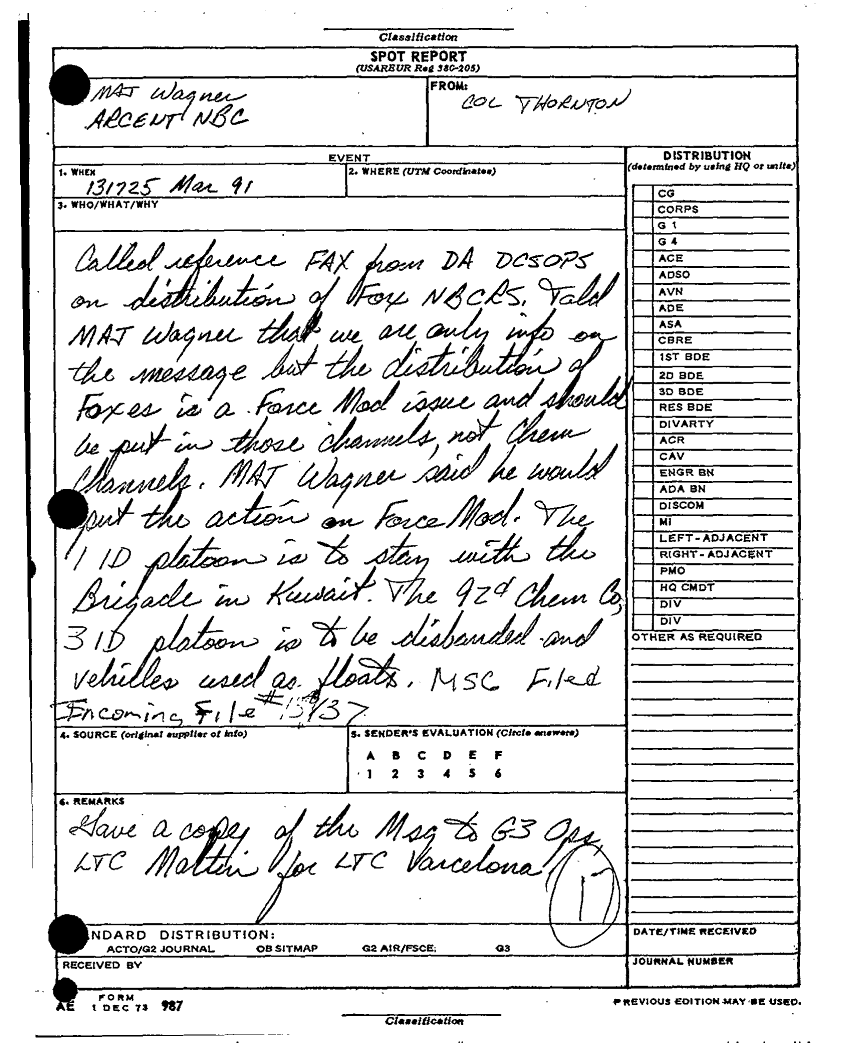 Classification
SPOT REPORT
(USAREUR Reg 380-205)
MAJ Wagner
ARCENT NBC
FROM:
COL THORNTON
EVENT
1. WHEN
131725 Mar 91
2. WHERE (UTM Coordinates)
3. WHO/WHAT/WHY
Called reference FAX from DA DCSOPS
on distribution of Fox NBCRS. Told
MAJ Wagner that we are only info on
the message but the distribution of
Foxes is a Force Mod issue and should
be put in those channels, not Chem
Channels. MAJ Wagner said he would
put the action on Force Mod. The
1 ID platoon is to stay with the
Brigade in Kuwait. The 92d Chem Co,
3 ID platoon is to be disbanded and
vehicles used as floats. MSG Filed
Incoming File #
4. SOURCE (original supplier of info)
5. SENDER'S EVALUATION (Circle answers)
A B C D E F
1 2 3 4 5 6
6. REMARKS
Gave a copy of the Msg to G3 Ops,
LTC for LTC Varcelona
17
NDARD DISTRIBUTION:
ACTO/G2 JOURNAL OB SITMAP G2 AIR/FSCE: G3
RECEIVED BY
DISTRIBUTION
(determined by using HQ or units)
CG
CORPS
G 1
G 4
ACE
ADSO
AVN
ADE
ASA
CBRE
1ST BDE
2D BDE
3D BDE
RES BDE
DIVARTY
ACR
CAV
ENGR BN
ADA BN
DISCOM
MI
LEFT-ADJACENT
RIGHT-ADJACENT
PMO
HQ CMDT
DIV
DIV
OTHER AS REQUIRED
DATE/TIME RECEIVED
JOURNAL NUMBER
AE FORM 1 DEC 73 987
PREVIOUS EDITION MAY BE USED.
Classification